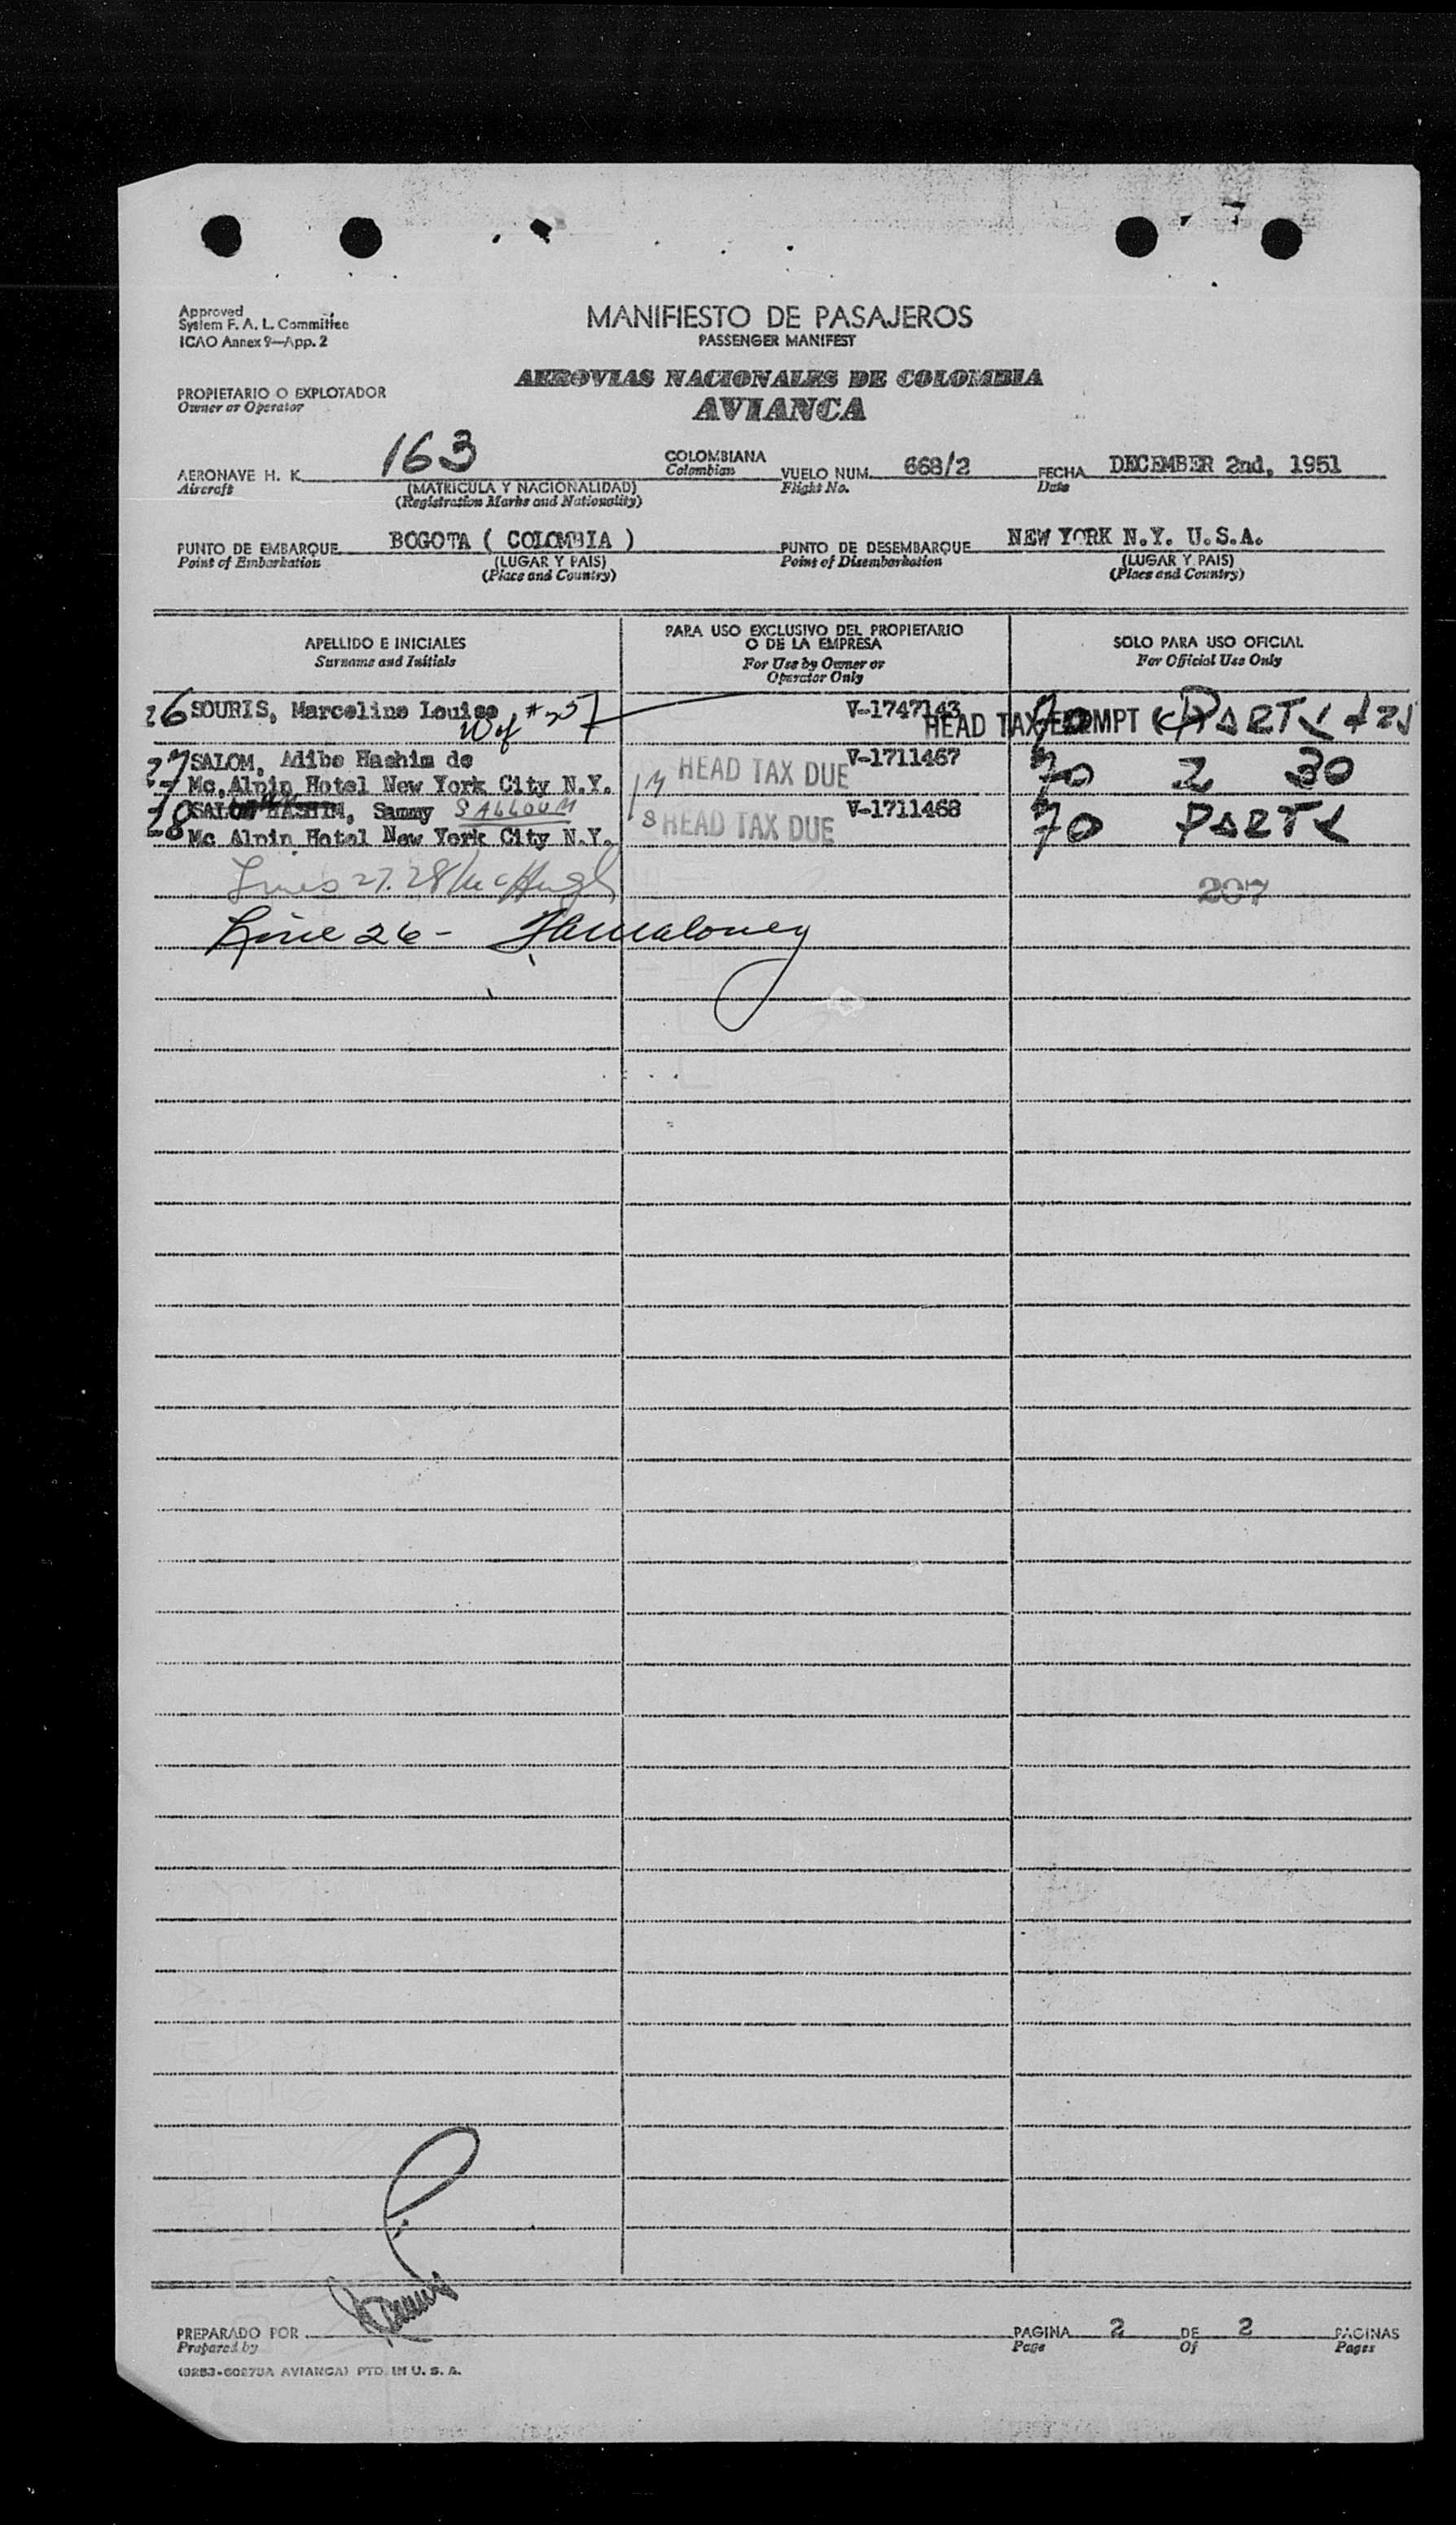 Approved
System F. A. L. Committee
ICAO Annex 9—App. 2
MANIFIESTO DE PASAJEROS
PASSENGER MANIFEST
PROPIETARIO O EXPLOTADOR
Owner or Operator
AEROVIAS NACIONALES DE COLOMBIA
AVIANCA
AERONAVE H. K. 163 COLOMBIANA VUELO NUM. 668/2 FECHA DECEMBER 2nd, 1951
Aircraft (MATRICULA Y NACIONALIDAD) Colombian Flight No. Date
(Registration Marks and Nationality)
PUNTO DE EMBARQUE BOGOTA ( COLOMBIA ) PUNTO DE DESEMBARQUE NEW YORK N.Y. U.S.A.
Point of Embarkation (LUGAR Y PAIS) Point of Disembarkation (LUGAR Y PAIS)
(Place and Country) (Place and Country)
APELLIDO E INICIALES PARA USO EXCLUSIVO DEL PROPIETARIO O DE LA EMPRESA SOLO PARA USO OFICIAL
Surname and Initials For Use by Owner or Operator Only For Official Use Only
26 SOURIS, Marceline Louise V-1747143 70 PARTY
W of #25 HEAD TAX EXEMPT
27 SALOM, Adibe Hashim de V-1711467
Mc, Alpin Hotel New York City N.Y. HEAD TAX DUE 70 2 30
28 SALOM HASHIM, Sammy SALLOUM V-1711468
Mc Alpin Hotel New York City N.Y. HEAD TAX DUE 70 PARTY
Lines 27. 28 McHugh 207
Line 26 - Maloney
PREPARADO POR PAGINA 2 DE 2 PAGINAS
Prepared by Page Of Pages
AVIANCA) PTD. IN U. S. A.